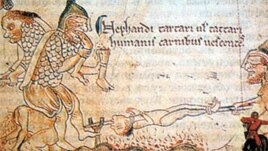 Nephandi tartari uł tattari
humanis carnibus uescentes